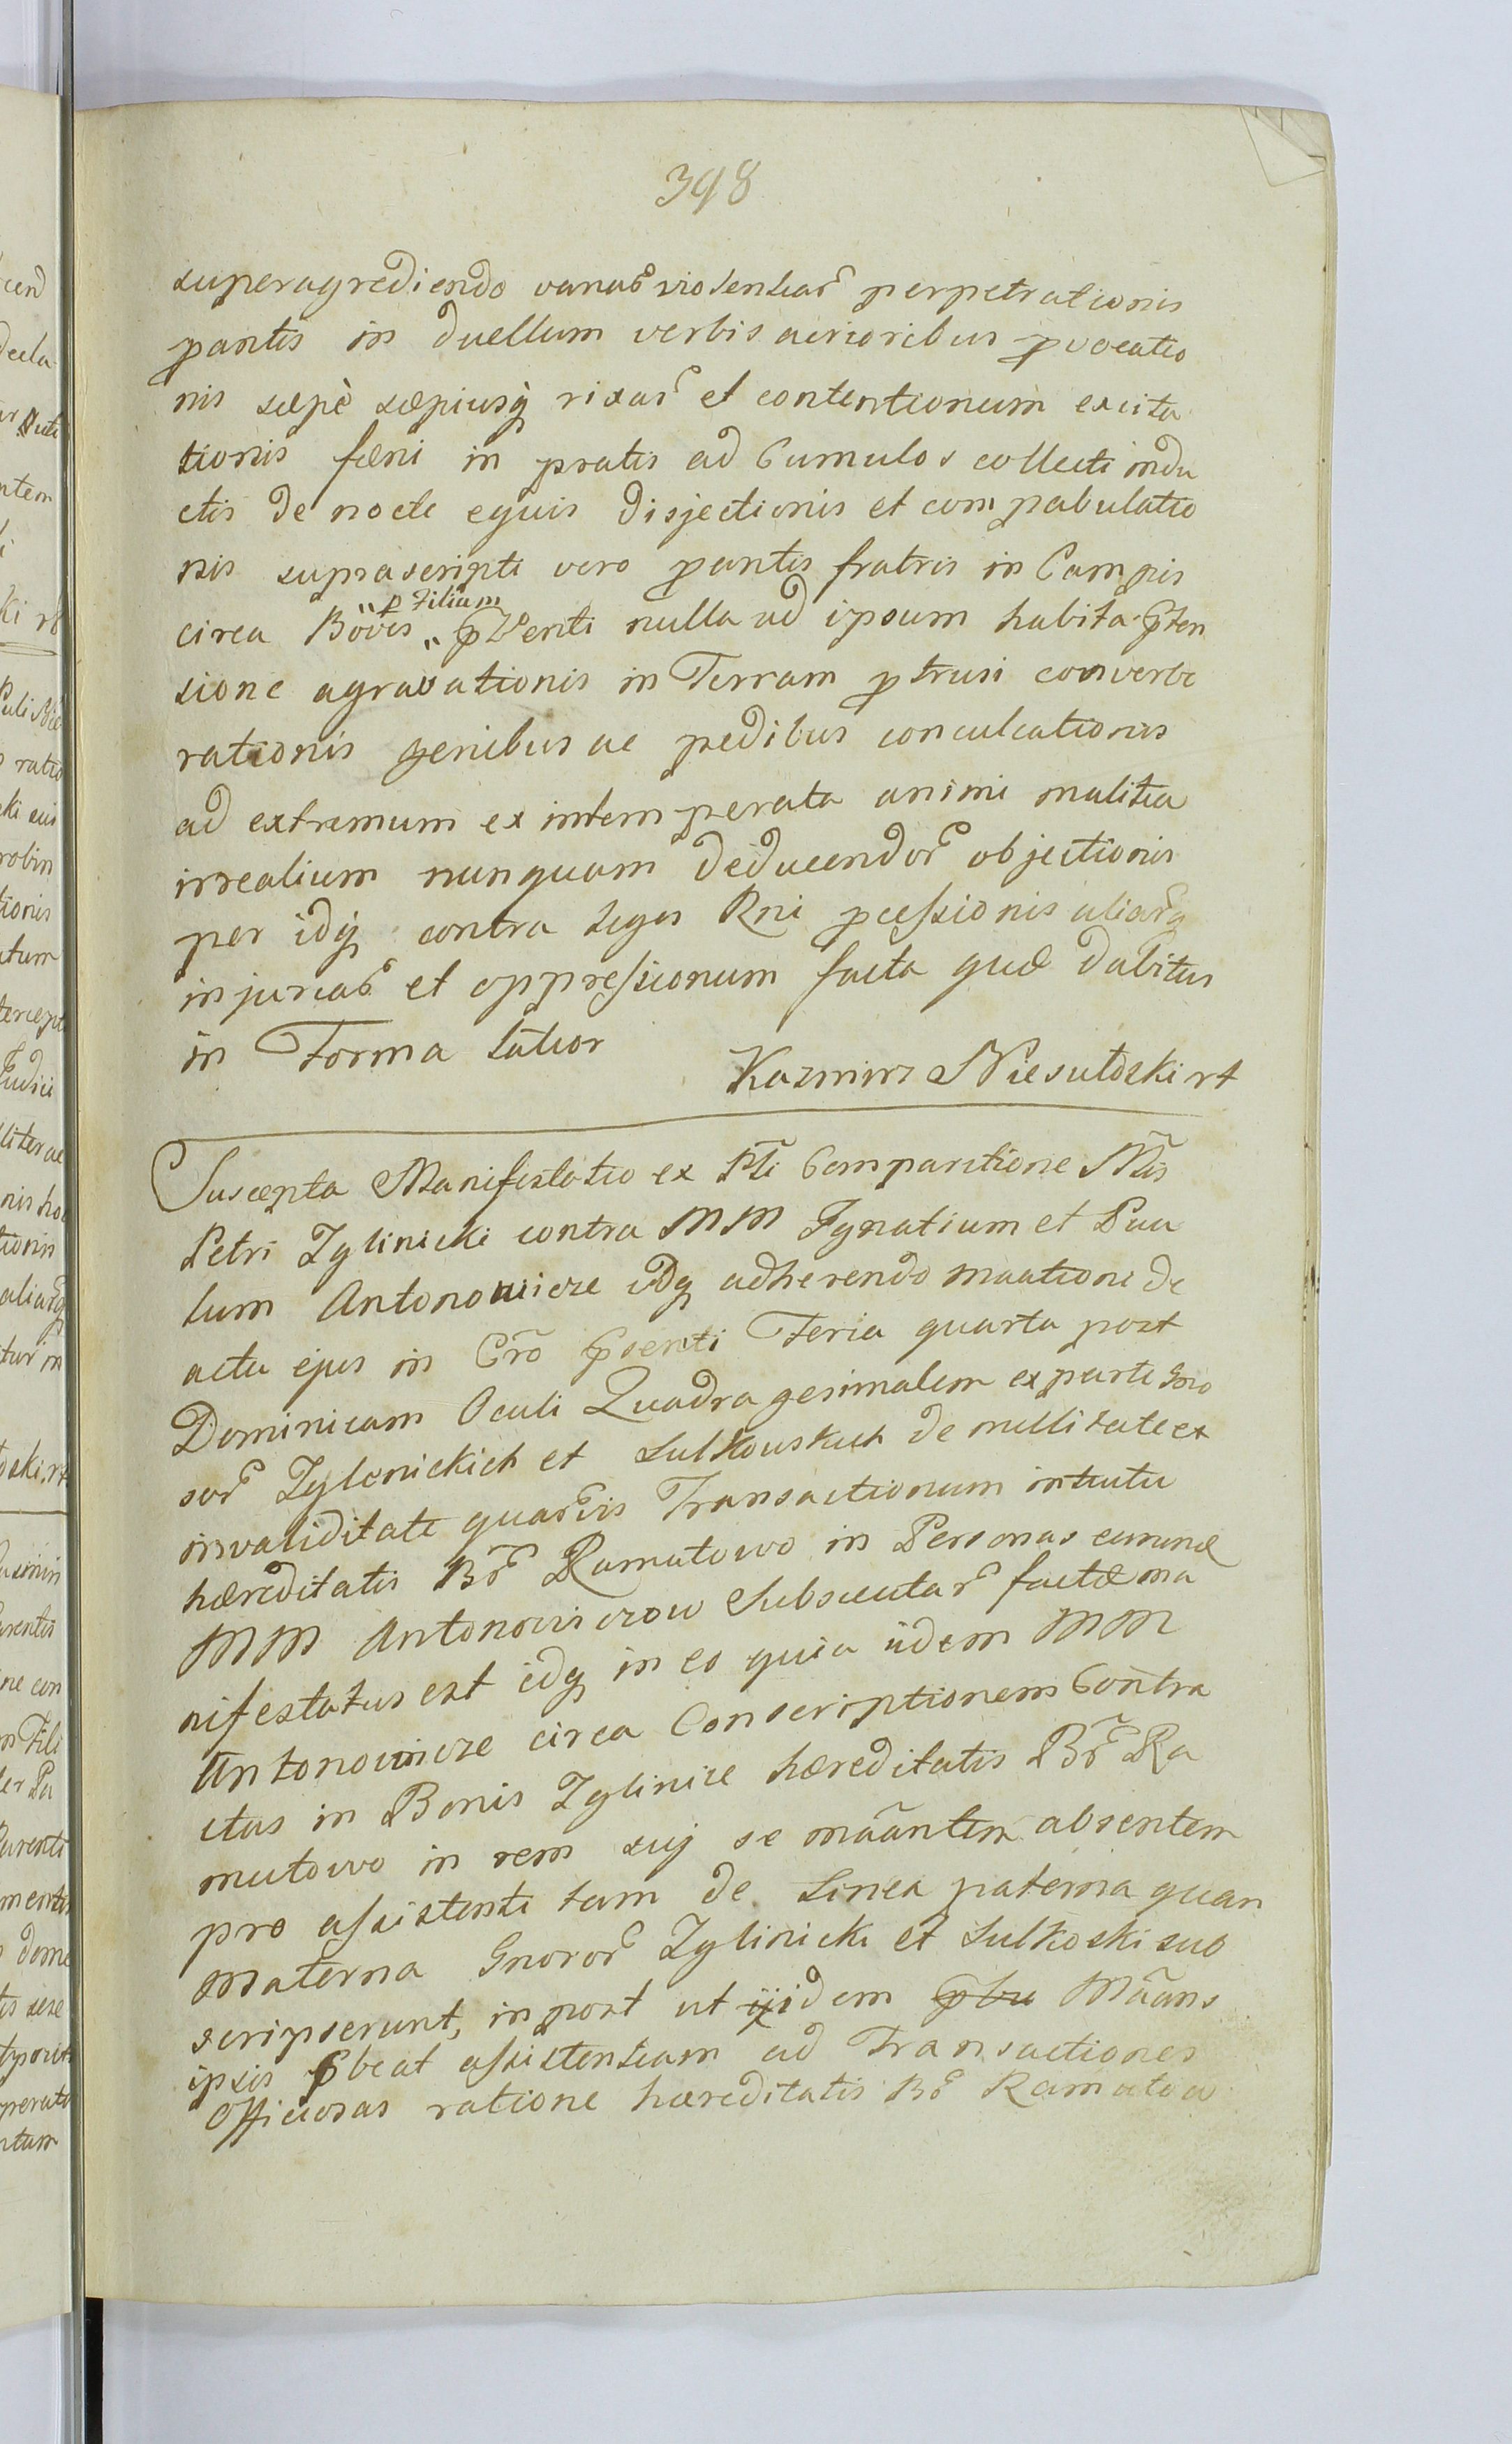 398
superagrediendo variar violentiar perpetrationis
pantis in duellum verbis acrioribus pvocatio
nis sæpè sæpiusq rixar et contentionum excita
tionis fæni in pratis ad Cumulos collecti indu
ctis de nocte equis disjectionis et compabulatio
nis suprascripti vero pantis fratris in Campis
p Filium
circa Boves pventi nulla ad ipsum habita pten
sione agravationis in Terram ptrusi converbe
rationis genibus ac pedibus conculcationis
ad extremum ex intemperata animi malitia
irrealium nunquam deducendor objectionis
per idq contra leges Rni pcessionis aliarq
injuriar et oppressionum facta quæ dabitur
in Forma latior
Kazmirz Niesułoski rt
Suscepta Manifestatio ex Pli Comparitione Mci
Petri Zylinicki contra MM Ignatium et Pau
lum Antonowicze idq adherendo mãationi de
actu ejus in Cro psenti Feria quarta post
Dominicam Oculi Quadragesimalem ex parte Gno
sor Zylenickich et Sulkouskich de nullitate et
invaliditate quarvis Transactionum intuitu
hæreditatis Br Ramutowo in Personas earund
MM Antonowiczow Subsecutar factæ ma
nifestatus est idq in eo quia iidem MM
Antonowicze circa Conscriptionem Contra
ctus in Bonis Zylinice hæreditatis Br Ra
mutowo in rem suj se mãantem absentem
pro assistenti tam de Linea paterna quan
materna Gnoror Zylinicki et Sulkoski sub
scripserunt, inpost ut iidem Mãans
ipsis pbeat assistentiam ad Transactiones
Officiosas ratione hæreditatis Br Ramutow